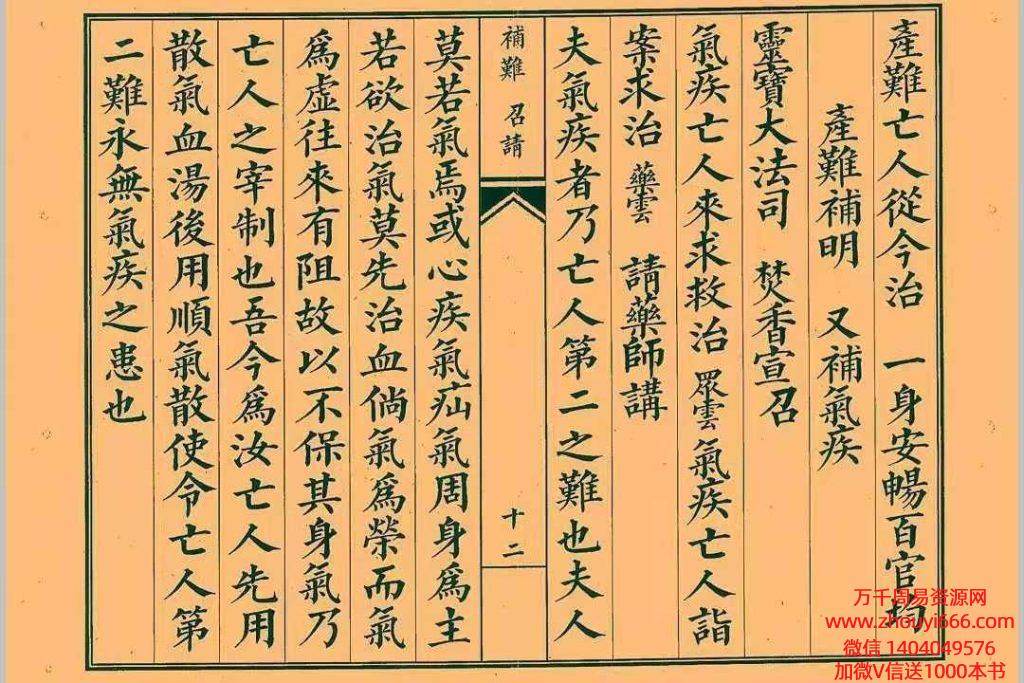 產難亡人從今治　一身安暢百官均
產難補明　又補氣疾
靈寶大法司　焚香宣召
氣疾亡人來求救治　眾雲　氣疾亡人詣
案求治　藥雲　請藥師講
夫氣疾者乃亡人第二之難也夫人
補難　召請
十二
莫若氣焉或心疾氣疝氣周身為主
若欲治氣莫先治血倘氣為榮而氣
為虛往來有阻故以不保其身氣乃
亡人之宰制也吾今為汝亡人先用
散氣血湯後用順氣散使令亡人第
二難永無氣疾之患也
万千周易资源网
www.zhouyi666.com
微信 1404049576
加微V信送1000本书